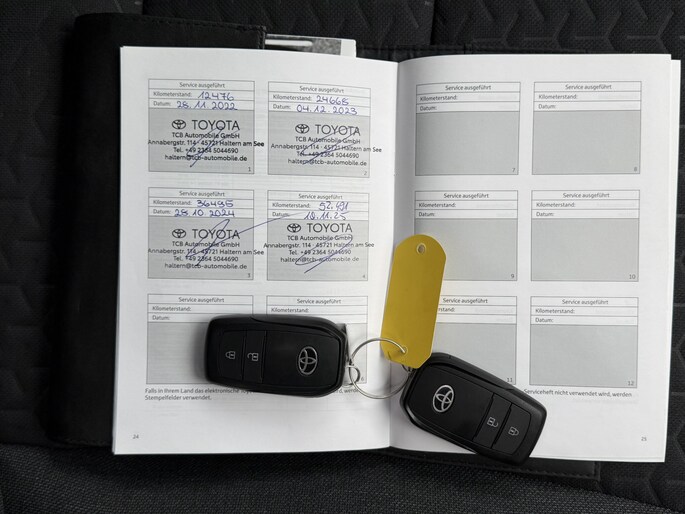 Service ausgeführt
Kilometerstand: 12476
Datum: 28.11.2022
TOYOTA
TCB Automobile GmbH
Annabergstr. 114 · 45721 Haltern am See
Tel. +49 2364 5044690
haltern@tcb-automobile.de
1
Service ausgeführt
Kilometerstand: 24665
Datum: 04.12.2023
TOYOTA
TCB Automobile GmbH
Annabergstr. 114 · 45721 Haltern am See
Tel. +49 2364 5044690
haltern@tcb-automobile.de
2
Service ausgeführt
Kilometerstand: 36495
Datum: 28.10.2024
TOYOTA
TCB Automobile GmbH
Annabergstr. 114 · 45721 Haltern am See
Tel. +49 2364 5044690
haltern@tcb-automobile.de
3
Service ausgeführt
Kilometerstand:
Datum:
TOYOTA
TCB Automobile GmbH
Annabergstr. 114 · 45721 Haltern am See
Tel. +49 2364 5044690
haltern@tcb-automobile.de
4
Service ausgeführt
Kilometerstand:
Datum:
Service ausgeführt
Kilometerstand:
Falls in Ihrem Land das elektronische
Stempelfelder verwendet.
24
Service ausgeführt
Kilometerstand:
Datum:
7
Service ausgeführt
Kilometerstand:
Datum:
8
Service ausgeführt
Kilometerstand:
Datum:
9
Service ausgeführt
Kilometerstand:
Datum:
10
Service ausgeführt
11
Service ausgeführt
Kilometerstand:
Datum:
12
Serviceheft nicht verwendet wird, werden
25